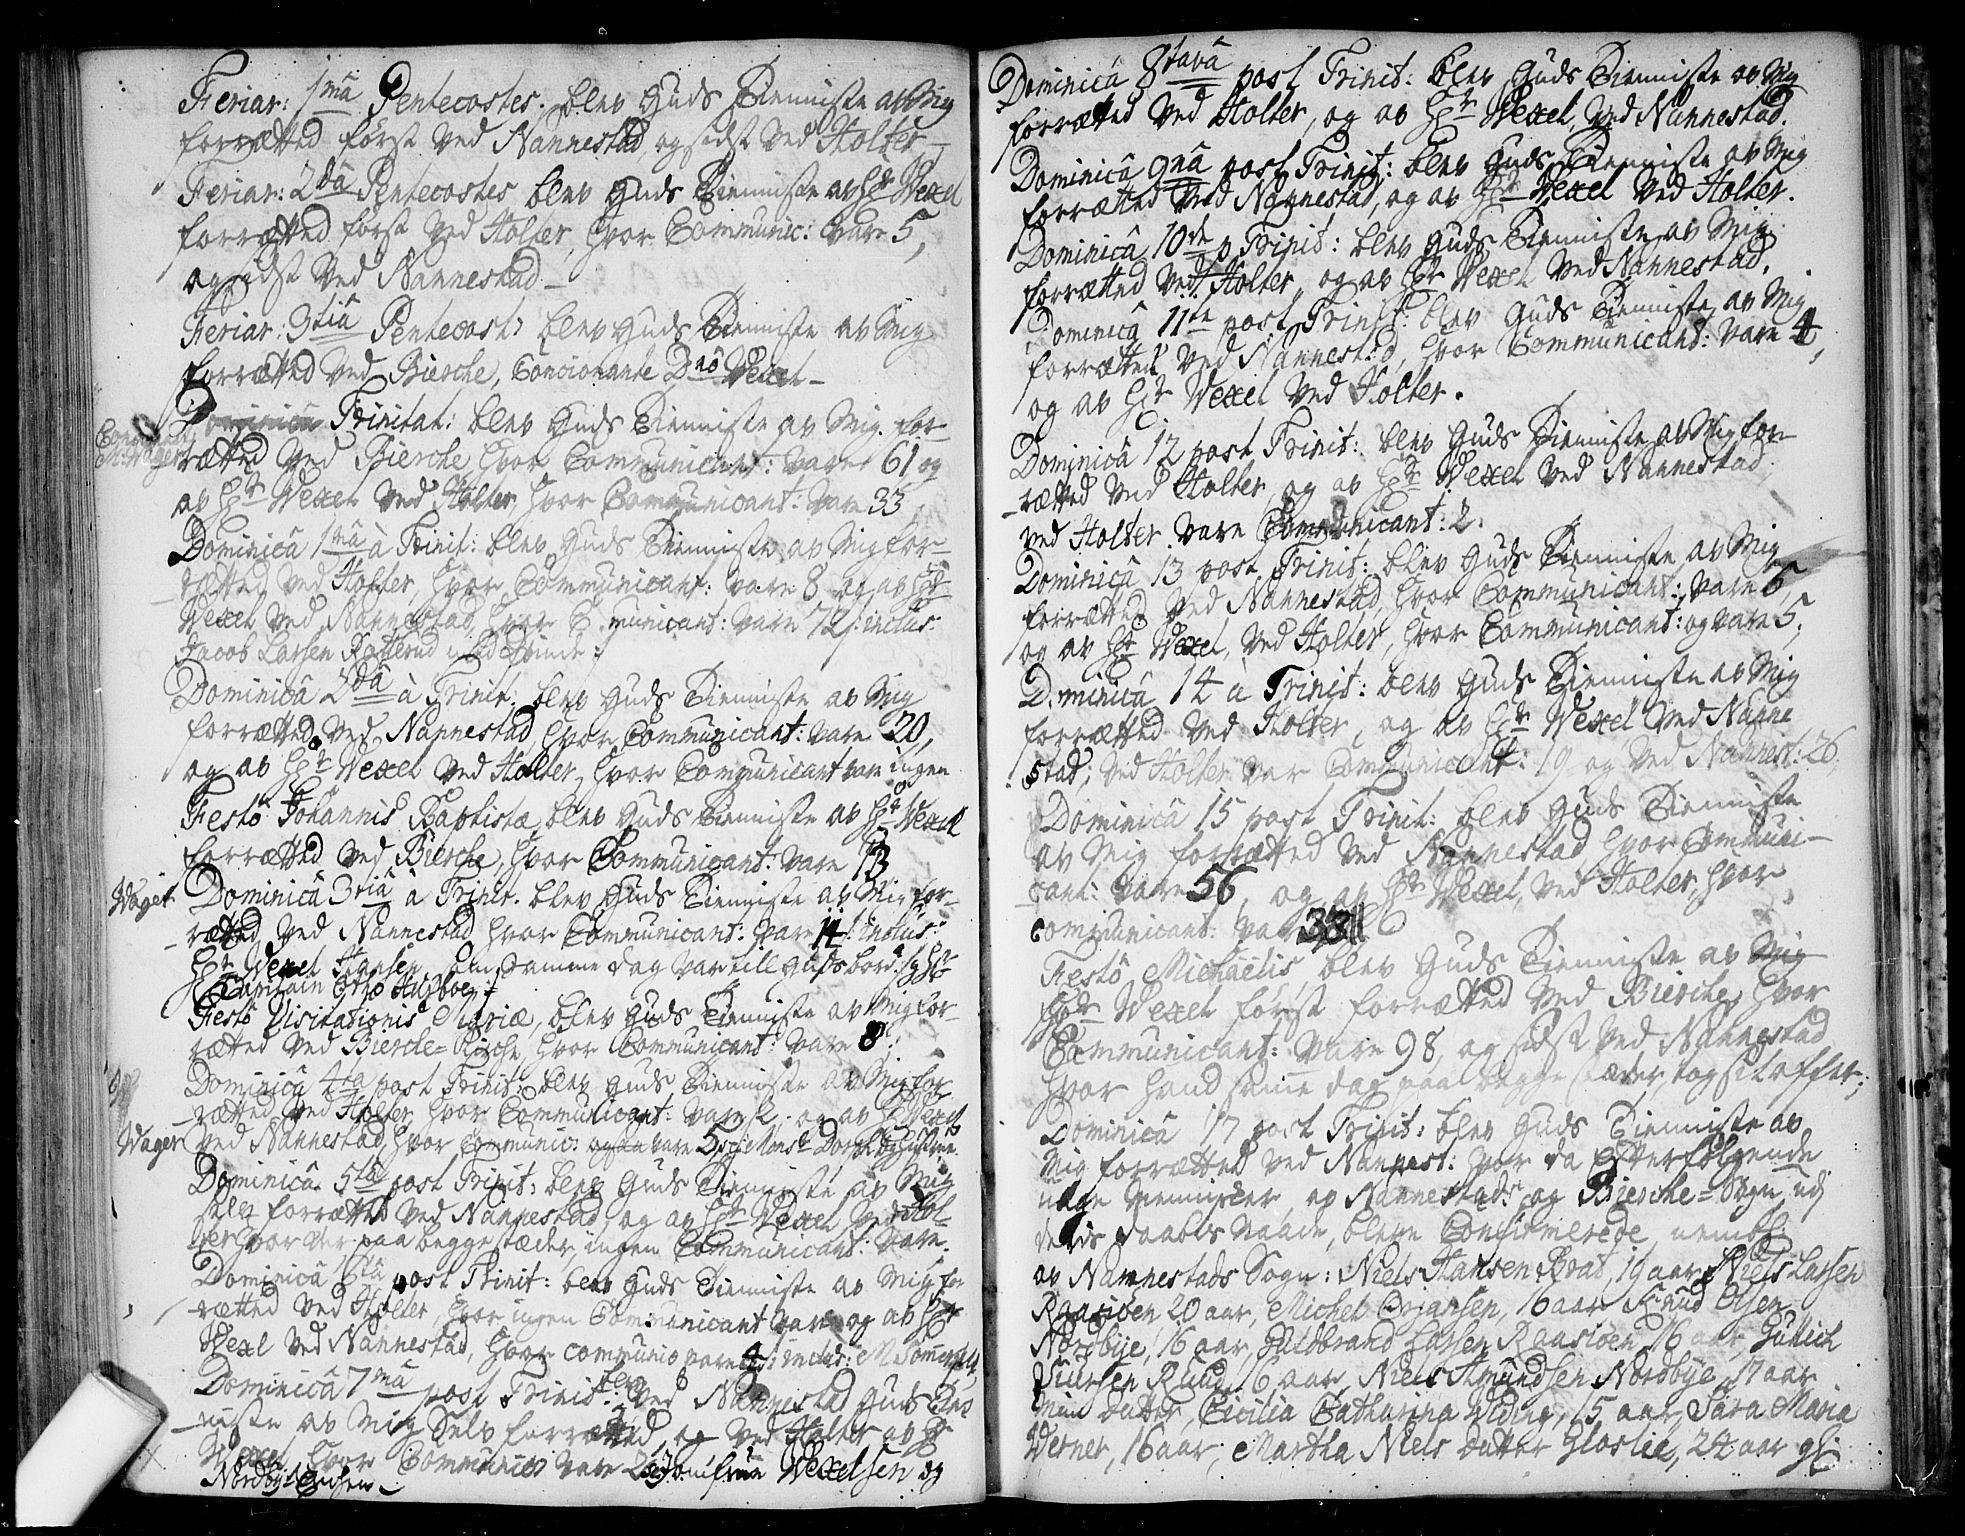 Feriar: 1mâ Pentecostes. blev Guds Tienniste av Mig
forrætted först ved Nannestad, og sidst ved Holter
Feriar: 2dâ Pentecostes blev Guds Tienniste av Hr Wexel
forrætted först ved Holter, hvor Communic: vare 5,
og sidst ved Nannestad
Feriar: 3tiâ Pentecost: blev Guds Tienniste av Mig
forrætted ved Bierche, Concionante Dno Wexel
Dominica Trinitat: blev Guds Tienniste av Mig for-
rætted ved Bierche hvor Communicant: vare 61 og
av Hr Wexel ved Holter, hvor Communicant: vare 33
Dominicâ 1mâ à Trinit: blev Guds Tienniste av Mig for-
rætted ved Holter, hvor Communicant: vare 8 og av Hr
Wexel ved Nannestad, hvor Communicant: vare 72 /: inclus:
Jacob Larsen
Dominicâ 2dâ à Trinit. blev Guds Tienniste av Mig
forrætted ved Nannestad, hvor Communicant: vare 20,
og av Hr Wexel ved Holter, hvor Communicant vare ingen
Festô Johannis Baptistæ blev Guds Tienniste av Hr Wexel
forrætted ved Bierche, hvor Communicant: vare 13
Waget
Dominicâ 3tiâ à Trinit. blev Guds Tienniste av Mig for-
rætted ved Nannestad hvor Communicant: vare 14 /: inclus:
Hr Wexel Hansen. Den samme dag var till Guds bord
Capitain Otto
Festô Visitationis Mariæ, blev Guds Tienniste av Mig for-
rætted ved Bierche-Kirche, hvor Communicant: vare 8.
Dominicâ 4ta post Trinit: blev Guds Tienniste av Mig for
rætted ved Holter, hvor Communicant: vare 2. og av Hr Wexel
Wager
ved Nannestad, hvor Communic: vare 5
Dominicâ 5tâ post Trinit: blev Guds Tienniste av Mig
selv forrætted ved Nannestad, og av Hr Wexel ved Hol-
ter hvor der paa begge stæder, ingen Communicant: vare.
Dominicâ 6tâ post Trinit: blev Guds Tienniste av Mig for
rætted ved Holter, hvor ingen Communicant vare og av Hr
Wexel ved Nannestad, hvor communic vare 4 inclus:
Dominicâ 7mâ post Trinit: blev ved Nannestad Guds Tien
niste av Mig Selv forrætted, og ved Holter av Hr
Wexel, hvor Communic vare 2 Jomfrue Wexelsen og
Dominicâ 8tavâ post Trinit: blev Guds Tienniste av Mig
forrætted ved Holter, og av Hr Wexel ved Nannestad.
Dominicâ 9nâ post Trinit: blev Guds Tienniste av Mig
forrætted ved Nannestad, og av Hr Wexel ved Holter.
Dominicâ 10de p Trinit: blev Guds Tienniste av Mig
forrætted ved Holter, og av Hr Wexel ved Nannestad.
Dominicâ 11te post Trinit: blev Guds Tienniste av Mig
forrætted ved Nannestad, hvor Communicant: vare 4,
og av Hr Wexel ved Holter.
Dominicâ 12 post Trinit: blev Guds Tienniste av Mig for-
rætted ved Holter, og av Hr Wexel ved Nannestad,
ved Holter vare Communicant: 2.
Dominicâ 13 post Trinit: blev Guds Tienniste av Mig
forrætted ved Nannestad, hvor Communicant: vare 6,
og av Hr Wexel, ved Holter, hvor Communicant: og vare 5.
Dominicâ 14 à Trinit: blev Guds Tienniste av Mig
forrætted ved Holter, og av Hr Wexel ved Nanne
stad, ved Holter var Communicant: 19 og ved Nannest: 26,
Dominicâ 15 post Trinit: blev Guds Tienniste
av Mig forrætted ved Nannestad, hvor Communi-
cant: vare 56, og av Hr Wexel, ved Holter, hvor
communicant: var
Festô Michaelis, blev Guds Tienniste av Mig
Hr Wexel först forrætted ved Bierche, hvor
Communicant: vare 98, og sidst ved Nannestad
hvor hand samme dag paa begge stæder tog sit offer;
Dominicâ 17 post Trinit: blev Guds Tienniste av
Mig forrætted ved Nannest: hvor da Efterfølgende
unge Mennisker av Nannestads og Bierche-Sogn, udj
deris Daabs Naade, bleve Confirmerede, nemblig
av Nannestads Sogn: Niels Hansen Brat, 19 aar, Niels Larsen
Raasiöen 20 aar, Michel Örjansen, 16 aar Knud Olsen
Nordbye, 16 aar, Hildbrand Larsen Raasiöen 16 aar, Gullich
Siursen Ruud, 16 aar, Niels Amundsen Nordbye, 17 aar
min datter, Cicilia Catharina Widing, 15 aar, Sara Maria
Werner, 16 aar, Martha Niels datter Gloslie, 24 aar